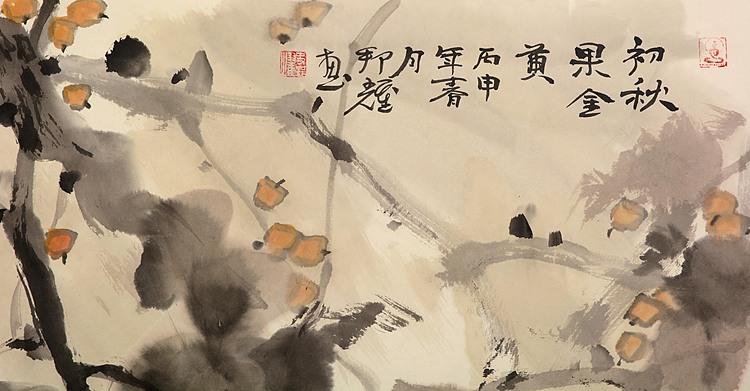 初秋
果金
黄
丙申
年春
月
画